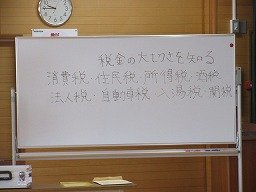 税金の大切さを知る
消費税・住民税・所得税・酒税
法人税・自動車税・入湯税・関税